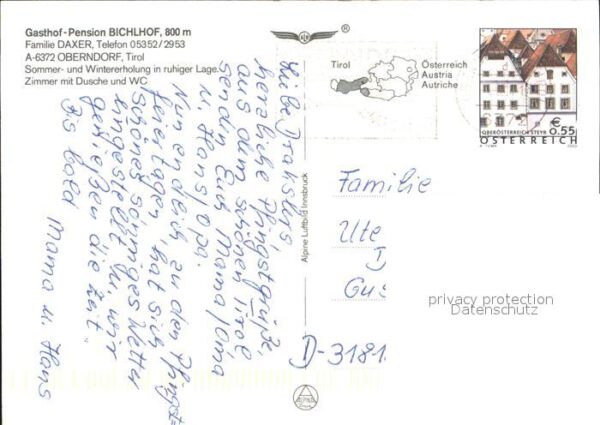 Gasthof-Pension BICHLHOF, 800 m
Familie DAXER, Telefon 05352/2953
A-6372 OBERNDORF, Tirol
Sommer- und Wintererholung in ruhiger Lage.
Zimmer mit Dusche und WC
®
Tirol
Österreich
Austria
Autriche
OBERÖSTERREICH STEYR
€ 0.55
ÖSTERREICH
Alpine Luftbild Innsbruck
Liebe
herzliche Pfingstgrüße,
aus dem schönen Tirol
senden Euch Mama/Oma
u. Hans/Opa.
Nun endlich zu den Pfingst-
feiertagen, hat sich
schönes sonniges Wetter
eingestellt u. wir
genießen die Zeit.
Bis bald
Mama u. Hans
Familie
Ute
Gus
D-3181
privacy protection
Datenschutz
ALPINE